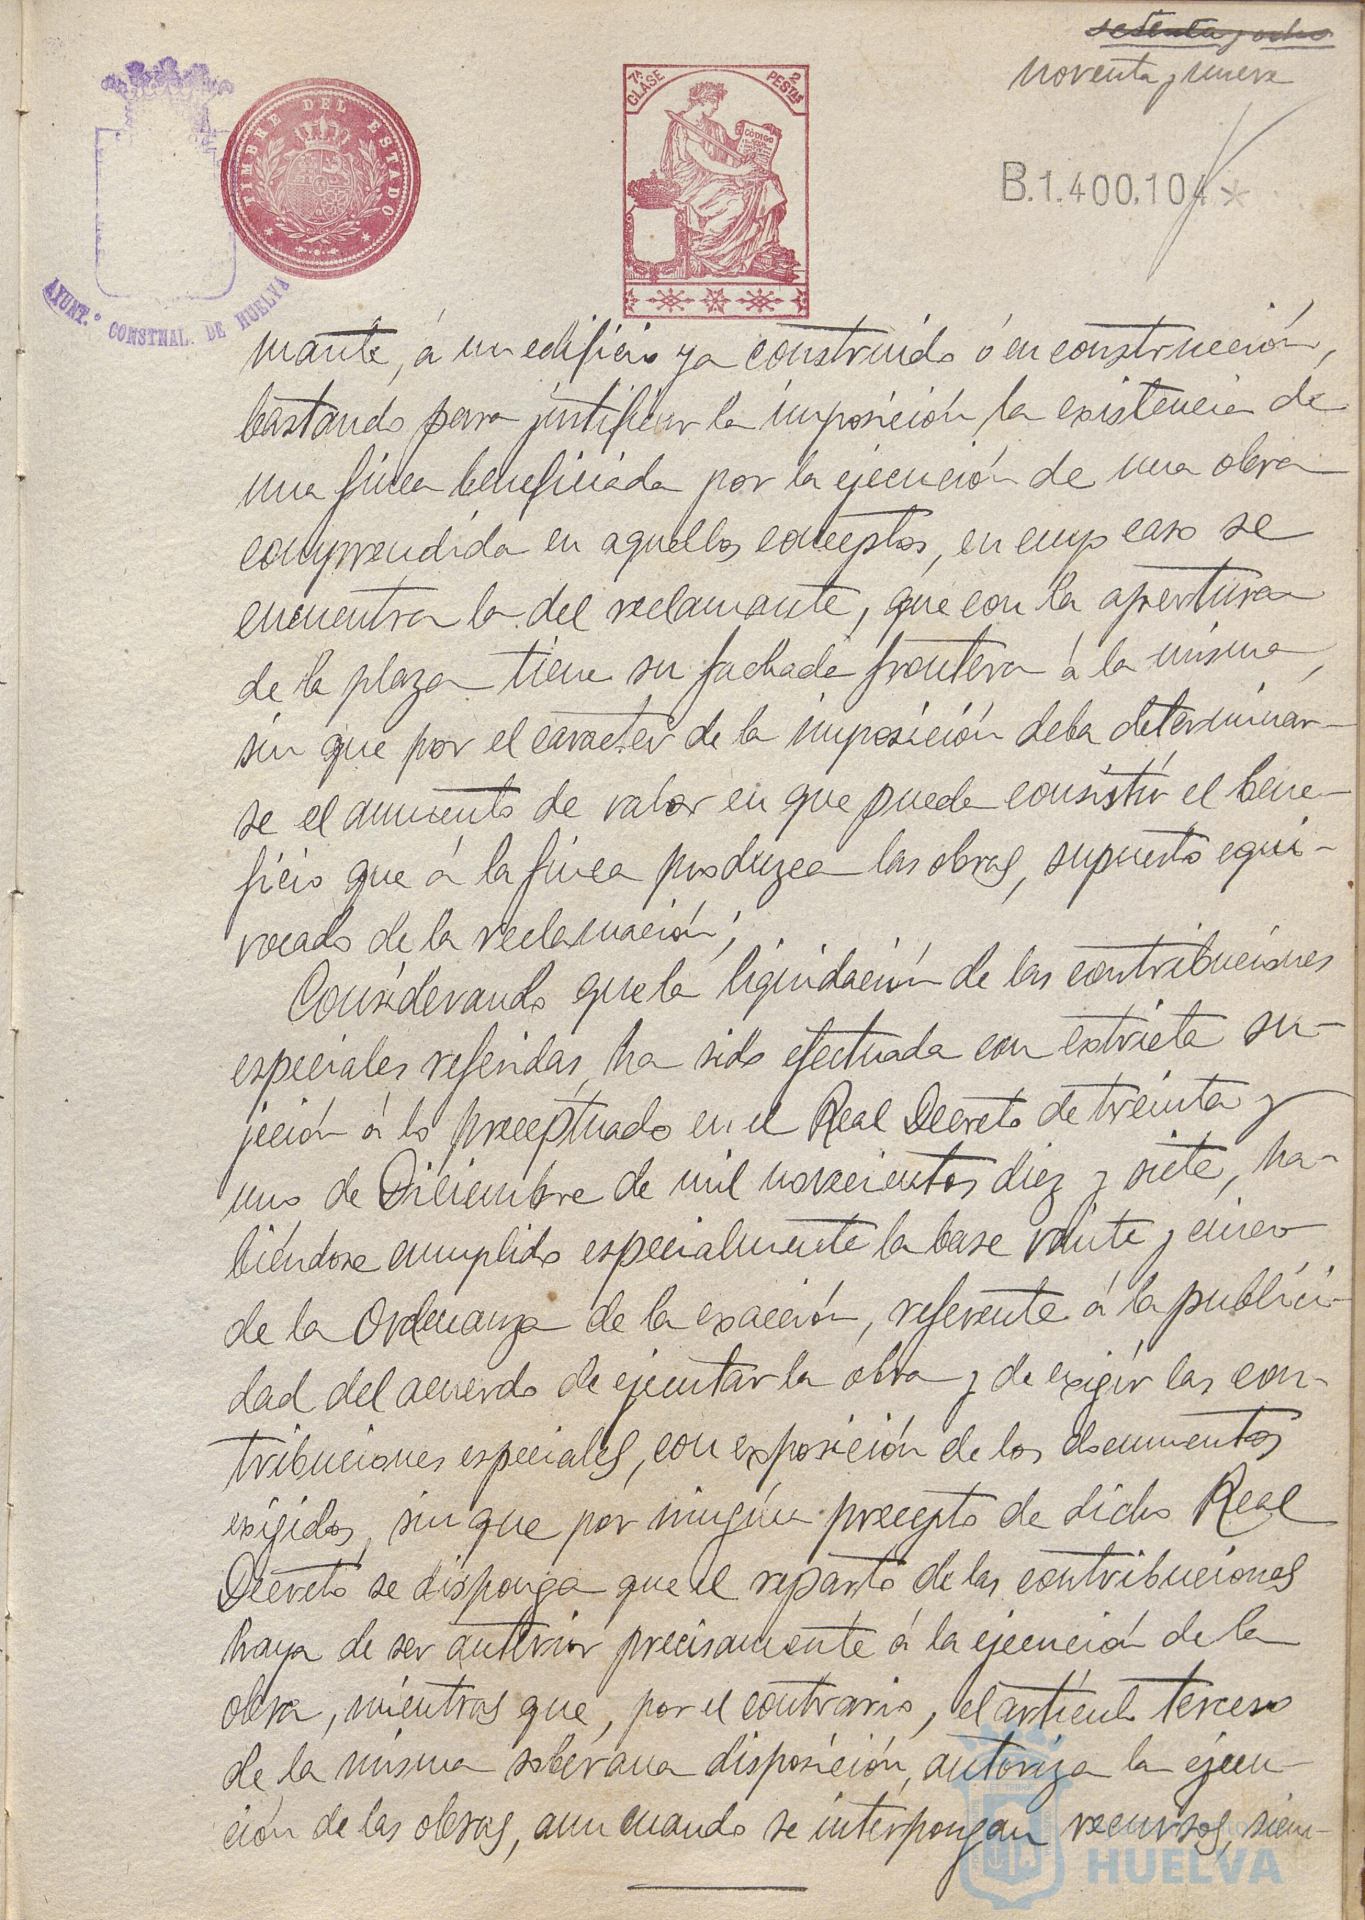 setenta y ocho
noventa y nueve
TIMBRE DEL ESTADO
7ª CLASE
2 PESTAS
CÓDIGO
B.1.400.104 *
AYUNT.º CONSTNAL. DE HUELVA
mante, á un edificio ya construido ó en construcción,
bastando para justificar la imposición, la existencia de
una finca beneficiada por la ejecución de una obra
comprendida en aquellos conceptos, en cuyo caso se
encuentra la del reclamante, que con la apertura
de la plaza tiene su fachada frontera á la misma,
sin que por el caracter de la imposición deba determinar-
se el aumento de valor en que puede consistir el bene-
ficio que á la finca produzca las obras, supuesto equi-
vocado de la reclamación;
Considerando que la liquidación de las contribuciones
especiales referidas, ha sido efectuada con extricta su-
jeción á lo preceptuado en el Real Decreto de treinta y
uno de Diciembre de mil novecientos diez y siete, ha-
biéndose cumplido especialmente la base veinte y cinco
de la Ordenanza de la exacción, referente á la publici-
dad del acuerdo de ejecutar la obra y de exigir las con-
tribuciones especiales, con exposición de los documentos
exigidos, sin que por ningún precepto de dicho Real
Decreto se disponga que el reparto de las contribuciones
haya de ser anterior precisamente á la ejecución de la
obra, mientras que, por el contrario, el artículo tercero
de la misma soberana disposición, autoriza la ejecu-
ción de las obras, aun cuando se interpongan recursos, siem-
HUELVA